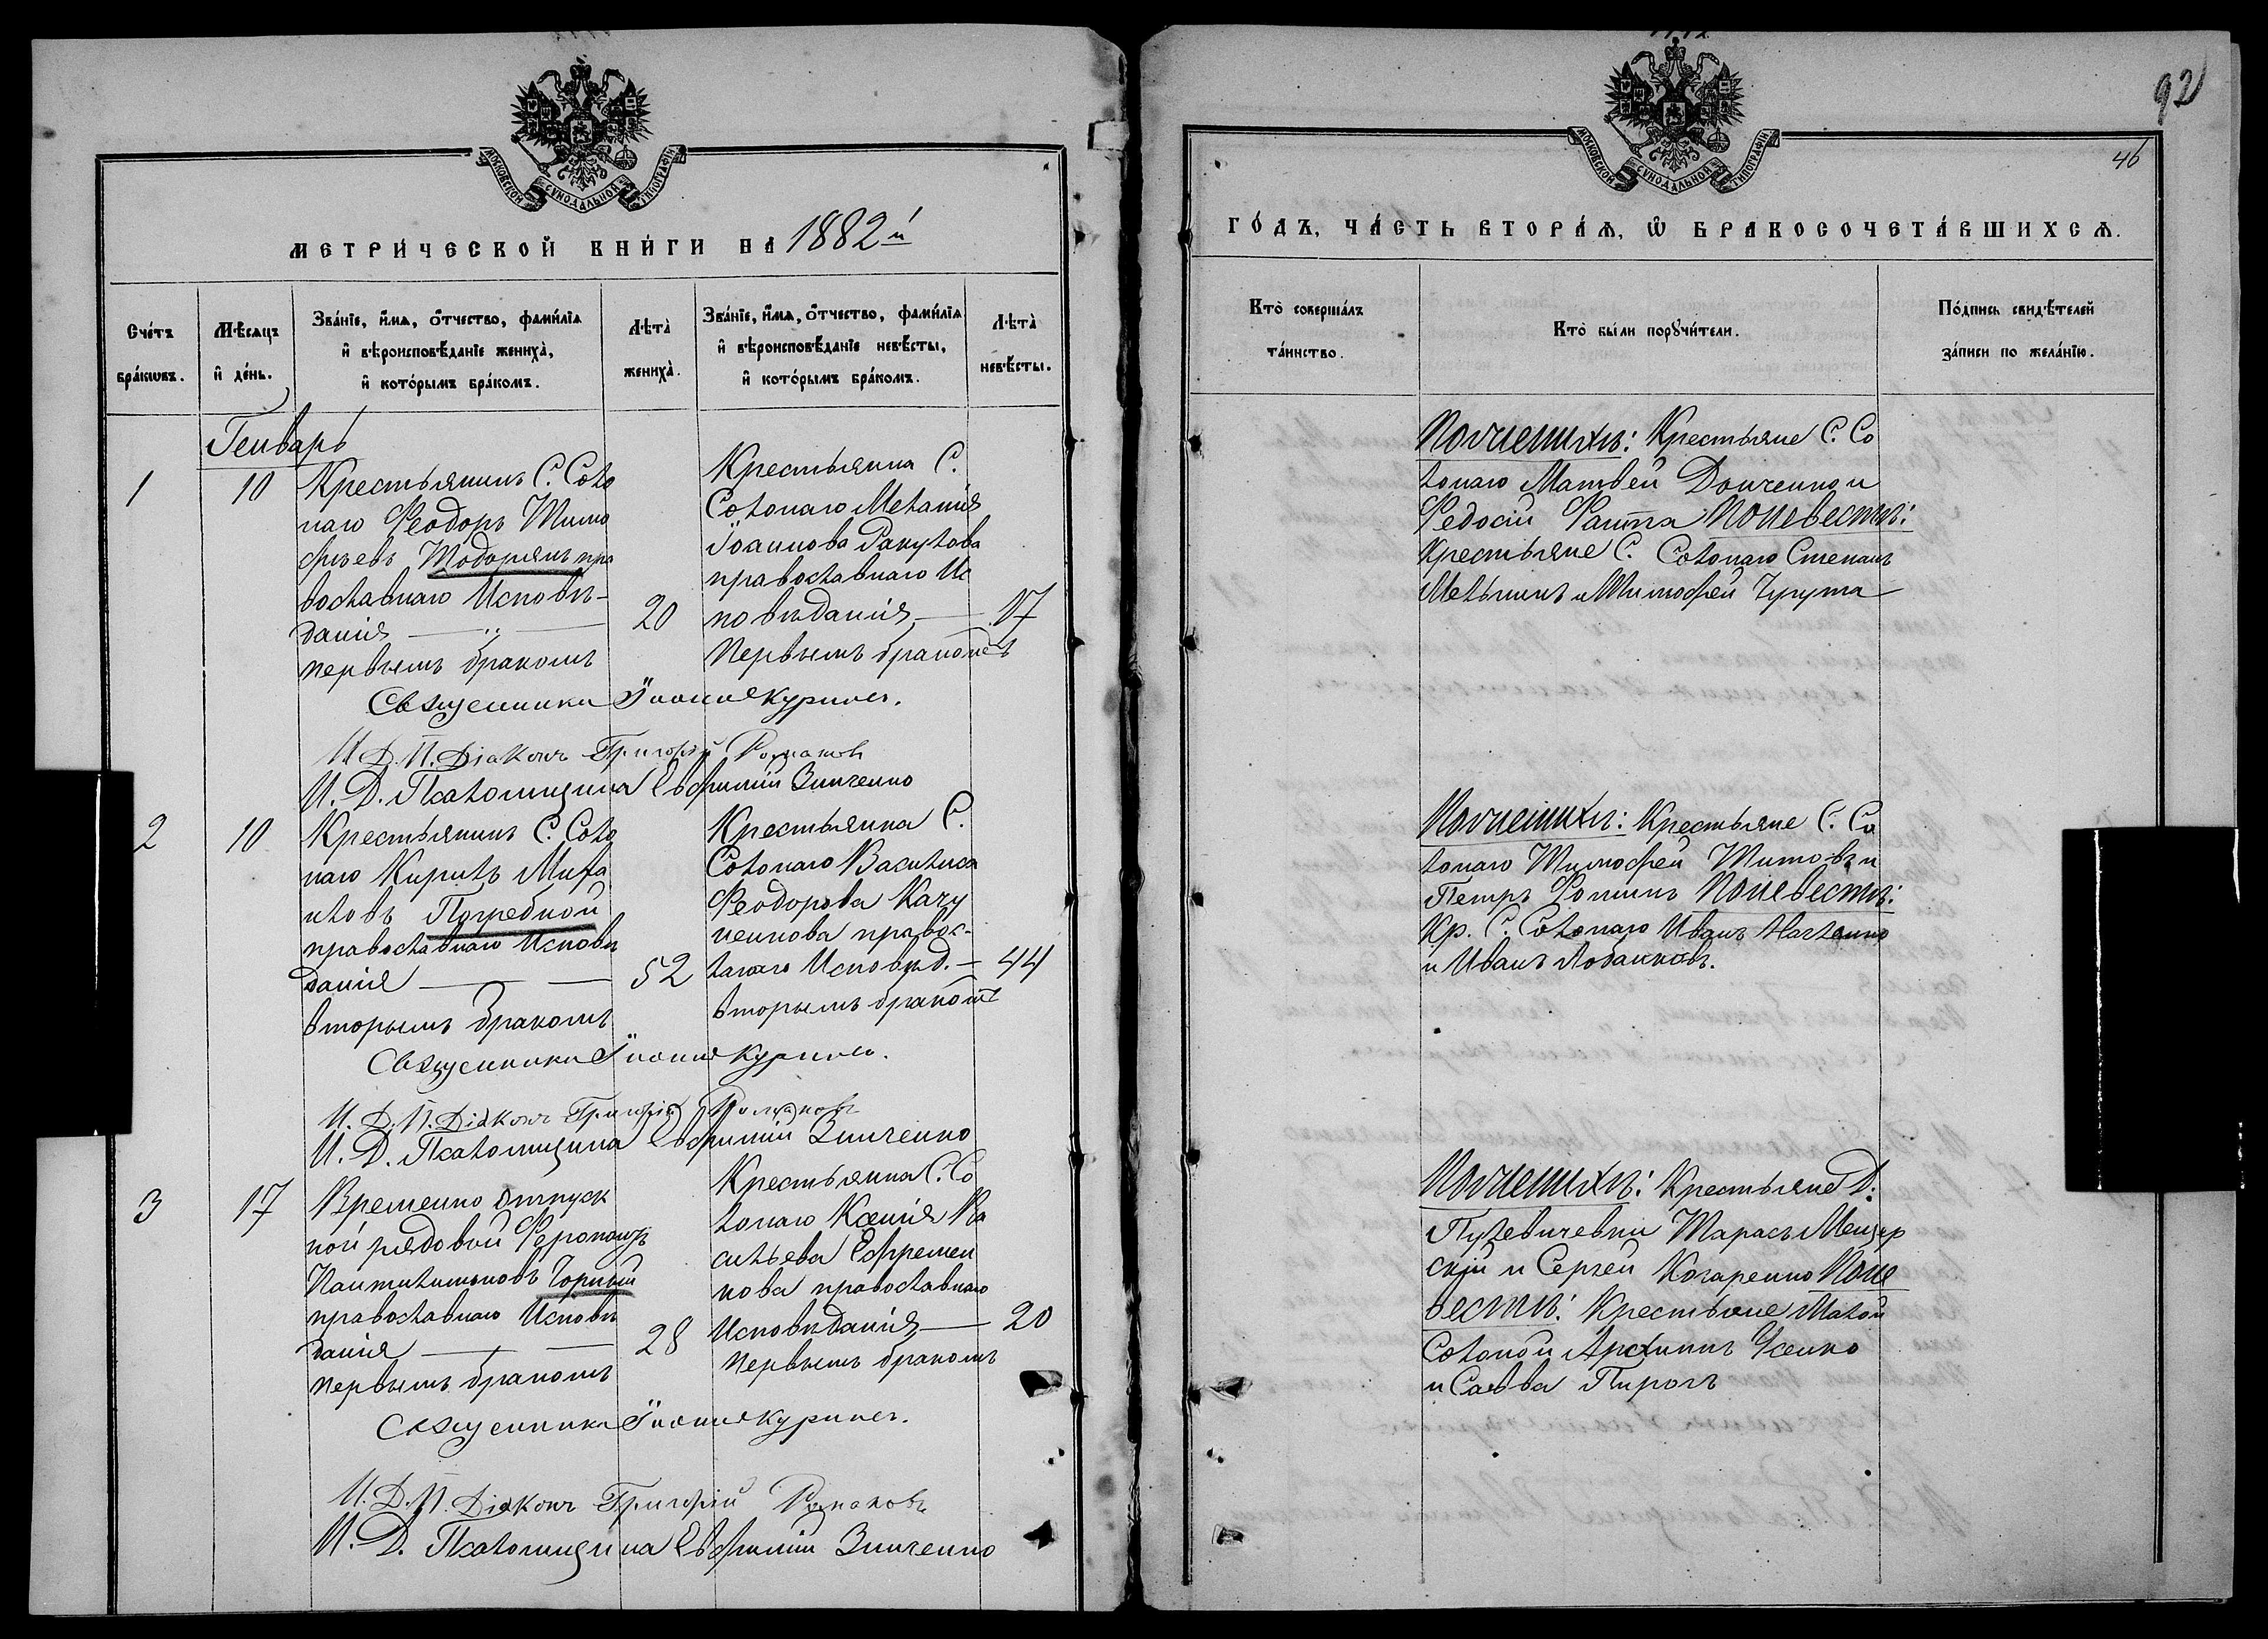 92
46
МОСКОВСКОЙ СѴНОДАЛЬНОЙ ТИПОГРАФІИ
МЕТРИ́ЧЕСКОЙ КНИ́ГИ НА 1882й
Сче́тъ бра́кѡвъ.
Мѣ́сяцъ и҆ де́нь.
Зва́нїе, и҆́мѧ, ѻ҆́тчество, фами́лїа
и҆ вѣроисповѣ́данїе жениха̀,
и҆ кото́рымъ бра́комъ.
Лѣта̀ жениха̀.
Зва́нїе, и҆́мѧ, ѻ҆́тчество, фами́лїа
и҆ вѣроисповѣ́данїе невѣ́сты,
и҆ кото́рымъ бра́комъ.
Лѣта̀ невѣ́сты.
Генварь
1
10
Крестьянинъ С. Соло
наго Ѳеодоръ Тимо
ѳѣевъ Тодорянъ пра
вославнаго Исповѣ-
данія
первымъ бракомъ
20
Крестьянка С.
Солонаго Меланія
Іоаннова Ракулова
православнаго Ис
повѣданія
Первымъ бракомъ
17
Священникъ Іоаннъ Куриловъ.
И. Д. П. Діаконъ Григорій Романовъ
И. Д. Псаломщика Евфимій Зинченко
2
10
Крестьянинъ С. Соло
наго Кирилъ Миха
иловъ Погребной
православнаго Исповѣ
данія
вторымъ бракомъ
52
Крестьянка С.
Солонаго Василиса
Ѳеодорова Качу
ненкова правос-
лавнаго Исповѣд.
вторымъ бракомъ
44
Священникъ Іоаннъ Куриловъ.
И. Д. П. Діаконъ Григорій Романовъ
И. Д. Псаломщика Евфимій Зинченко
3
17
Временно отпуск
ной рядовой Ѳерапонтъ
Пантилимоновъ Чорный
православнаго Исповѣ
данія
первымъ бракомъ
28
Крестьянка С. Со
лонаго Ксенія Ва
сильева Ефремен
кова православнаго
Исповѣданія
первымъ бракомъ
20
Священникъ Іоаннъ Куриловъ.
И. Д. П. Діаконъ Григорій Романовъ
И. Д. Псаломщика Евфимій Зинченко
МОСКОВСКОЙ СѴНОДАЛЬНОЙ ТИПОГРАФІИ
ГО́ДЪ, ЧА́СТЬ ВТОРА́Ѧ, Ѡ҆ БРАКОСОЧЕТА́ВШИХСѦ.
Кто̀ соверша́лъ та́инство.
Кто̀ бы́ли порꙋчи́тели.
По́дпись свидѣ́телей за́писи по жела́нїю.
По женихѣ: Крестьяне С. Со
лонаго Матвей Донченко и
Федосій Рашпа По невестѣ:
Крестьяне С. Солонаго Степанъ
Мельникъ и Тимофей Чугута
По женихѣ: Крестьяне С. Со
лонаго Тимофей Титовъ и
Петръ Фоминъ По невестѣ:
Кр. С. Солонаго Иванъ
и Иванъ Лобанковъ.
По женихѣ: Крестьяне Д.
Тарасъ Мещер
скій и Сергей Кочаренко По не
вестѣ: Крестьяне Малой
Солоной Архипъ Усенко
и Савва Пирогъ